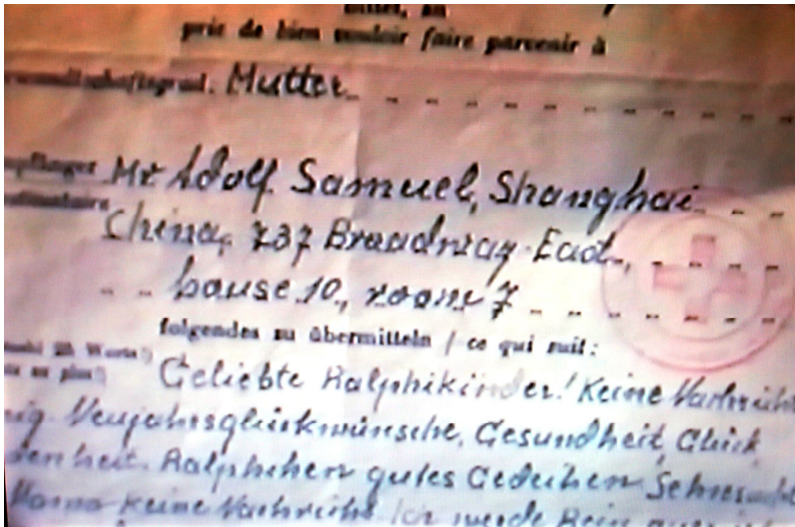 prie de bien vouloir faire parvenir à
Mutter
Mr Adolf Samuel, Shanghai
China, 737 Broadway East,
house 10, room 7
folgendes zu übermitteln / ce qui suit:
Geliebte Ralphikinder! Keine Nachricht
Neujahrsglückwünsche, Gesundheit, Glück
Ralphchen gutes Gedeihen
keine Nachricht. Ich werde